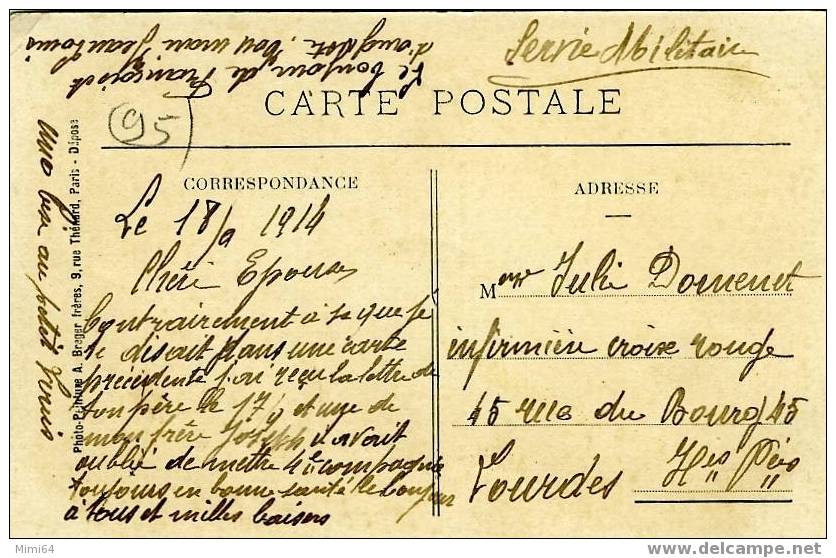 Servie Militair
Le bonjour de François
d'augster, ton mari Jean Louis
CARTE POSTALE
95
CORRESPONDANCE
Le 18/9 1914
Chéri Epouse
Contrairement à se que je
te disait dans une carte
précédente j'ai reçu la lettre de
ton père le 17/9 et une de
mon frère Joseph il avait
oublié de mettre 4e compagnie
toujours en bonne santé le bonjour
à tous et milles baisers
ADRESSE
Mme Julie Domenet
infirmière croix rouge
45 rue du Bourg 45
Lourdes Htes Pées
Photo-Peinture A. Breger frères, 9, rue Thénard, Paris - Déposé
une bise au petit
Mimi64
delcampe.net